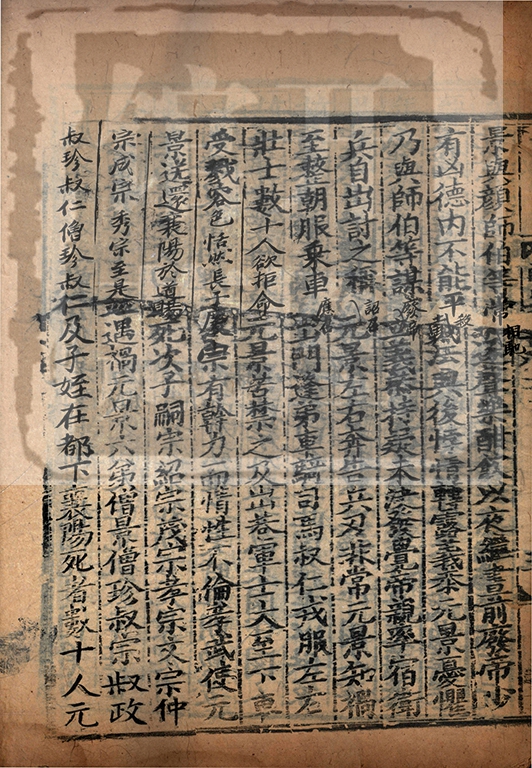 景與顏師伯等常相馳逐聲樂酣飲以夜繼晝前廢帝少
有凶德内不能平殺戴法興後悖情轉露義恭元景憂懼
乃與師伯等謀廢帝立義恭持疑未決發覺帝親率宿衛
兵自出討之稱詔召元景左右奔告兵刃非常元景知禍
至整朝服乘車應召出門逢弟車騎司馬叔仁戎服左右
壯士數十人欲拒命元景苦禁之及出巷軍士大至下車
受戮容色恬然長子慶宗有幹力而情性不倫孝武使元
景送還襄陽於道賜死次子嗣宗紹宗茂宗孝宗文宗仲
宗成宗秀宗至是並遇禍元景六弟僧景僧珍叔宗叔政
叔珍叔仁僧珍叔仁及子姪在都下襄陽死者數十人元